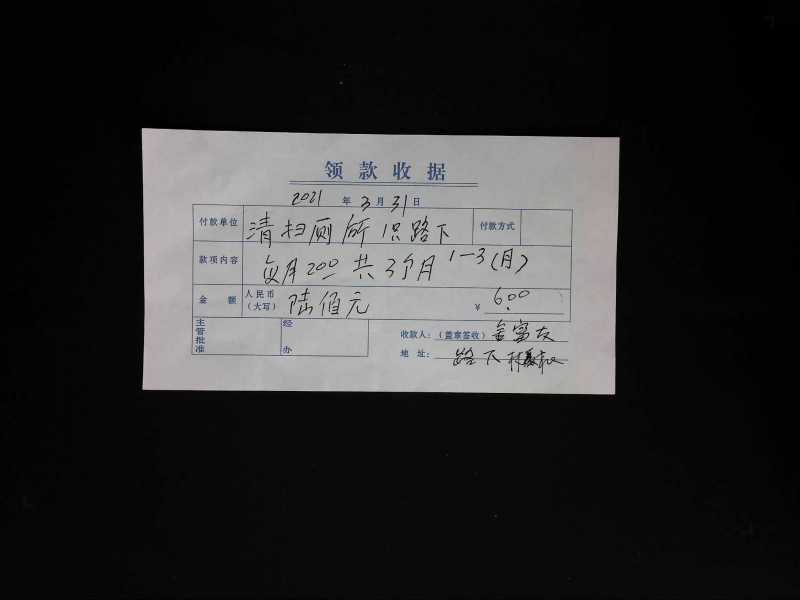 领款收据
2021年3月31日
付款单位 清扫厕所 路下 付款方式
款项内容 每月200 共3个月 1-3(月)
金额 人民币(大写) 陆佰元 ¥ 600
主管批准 经办 收款人:(盖章签收) 金富友
地址: 路下村